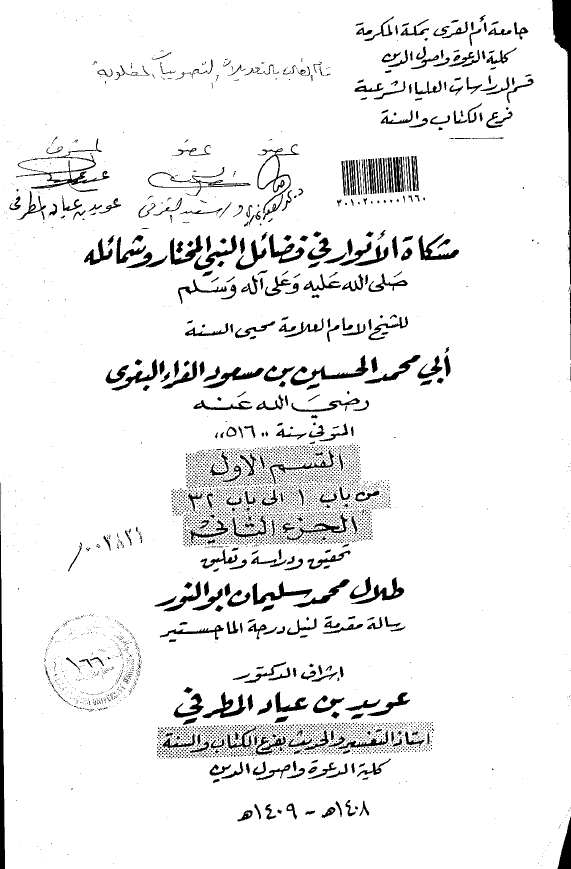 جامعة أم القرى بمكة المكرمة
كلية الدعوة واصول الدين
قسم الدراسات العليا الشرعية
فرع الكتاب والسنة
عضو
عضو
المشرف
عويد بن عياد المطرفي
٣٠١٠٢٠٠٠٠٠١٦٦٠
مشكاة الأنوار في فضائل النبي المختار وشمائله
صلى الله عليه وعلى آله وسلم
للشيخ الامام العلامة محيى السنة
أبي محمد الحسين بن مسعود الفراء البغوى
رضي الله عنه
المتوفي سنة "٥١٦"
القسم الاول
من باب ١ الى باب ٣٢
الجزء الثاني
تحقيق ودراسة وتعليق
طلال محمد سليمان ابو النور
رسالة مقدمة لنيل درجة الماجستير
١٦٦٠
اشراف الدكتور
عويد بن عياد المطرفي
استاذ التفسير والحديث بفرع الكتاب والسنة
كلية الدعوة واصول الدين
١٤٠٨هـ - ١٤٠٩هـ